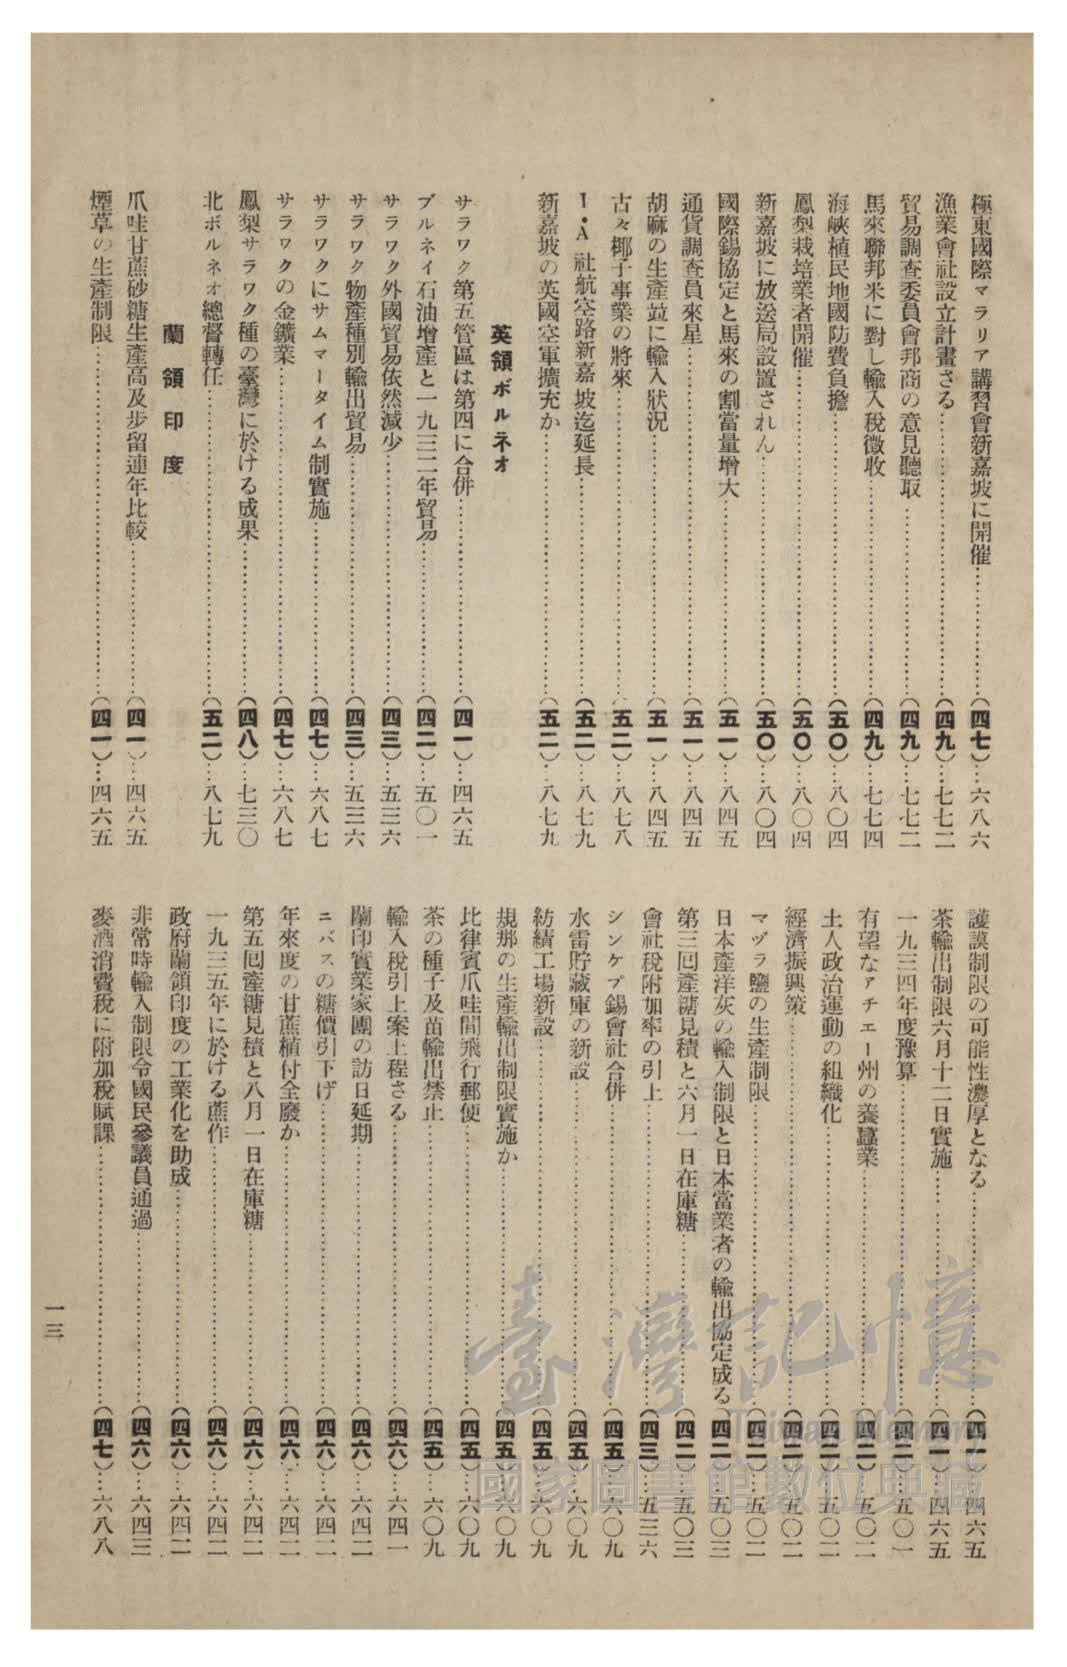 極東國際マラリア講習會新嘉坡に開催……(四七)…六八六
漁業會社設立計畫さる……(四九)…七七二
貿易調査委員會邦商の意見聽取……(四九)…七七二
馬來聯邦米に對し輸入稅徵收……(四九)…七七四
海峽植民地國防費負擔……(五〇)…八〇四
鳳梨栽培業者開催……(五〇)…八〇四
新嘉坡に放送局設置されん……(五〇)…八〇四
國際錫協定と馬來の割當量增大……(五一)…八四五
通貨調査員來星……(五一)…八四五
胡麻の生產竝に輸入狀況……(五一)…八四五
古々椰子事業の將來……(五二)…八七八
I・A社航空路新嘉坡迄延長……(五二)…八七九
新嘉坡の英國空軍擴充か……(五二)…八七九
英領ボルネオ
サラワク第五管區は第四に合併……(四一)…四六五
ブルネイ石油增產と一九三二年貿易……(四二)…五〇一
サラワク外國貿易依然減少……(四三)…五三六
サラワク物產種別輸出貿易……(四三)…五三六
サラワクにサムマータイム制實施……(四七)…六八七
サラワクの金鑛業……(四七)…六八七
鳳梨サラワク種の臺灣に於ける成果……(四八)…七三〇
北ボルネオ總督轉任……(五二)…八七九
蘭領印度
爪哇甘蔗砂糖生產高及步留連年比較……(四一)…四六五
煙草の生產制限……(四一)…四六五
護謨制限の可能性濃厚となる……(四一)…四六五
茶輸出制限六月十二日實施……(四一)…四六五
一九三四年度豫算……(四二)…五〇一
有望なアチエー州の養蠶業……(四二)…五〇二
土人政治運動の組織化……(四二)…五〇二
經濟振興策……(四二)…五〇二
マヅラ鹽の生產制限……(四二)…五〇二
日本產洋灰の輸入制限と日本當業者の輸出協定成る…(四二)…五〇三
第三回產糖見積と六月一日在庫糖……(四二)…五〇三
會社稅附加率の引上……(四三)…五三六
シンケプ錫會社合併……(四五)…六〇九
水雷貯藏庫の新設……(四五)…六〇九
紡績工場新設……(四五)…六〇九
規那の生產輸出制限實施か……(四五)…六〇九
比律賓爪哇間飛行郵便……(四五)…六〇九
茶の種子及苗輸出禁止……(四五)…六〇九
輸入稅引上案上程さる……(四六)…六四一
蘭印實業家團の訪日延期……(四六)…六四二
ニバスの糖價引下げ……(四六)…六四二
年來度の甘蔗植付全廢か……(四六)…六四二
第五回產糖見積と八月一日在庫糖……(四六)…六四二
一九三五年に於ける蔗作……(四六)…六四二
政府蘭領印度の工業化を助成……(四六)…六四二
非常時輸入制限令國民參議員通過……(四六)…六四三
麥酒消費稅に附加稅賦課……(四七)…六八八
一三
臺灣記憶
Taiwan Memory
國家圖書館數位典藏